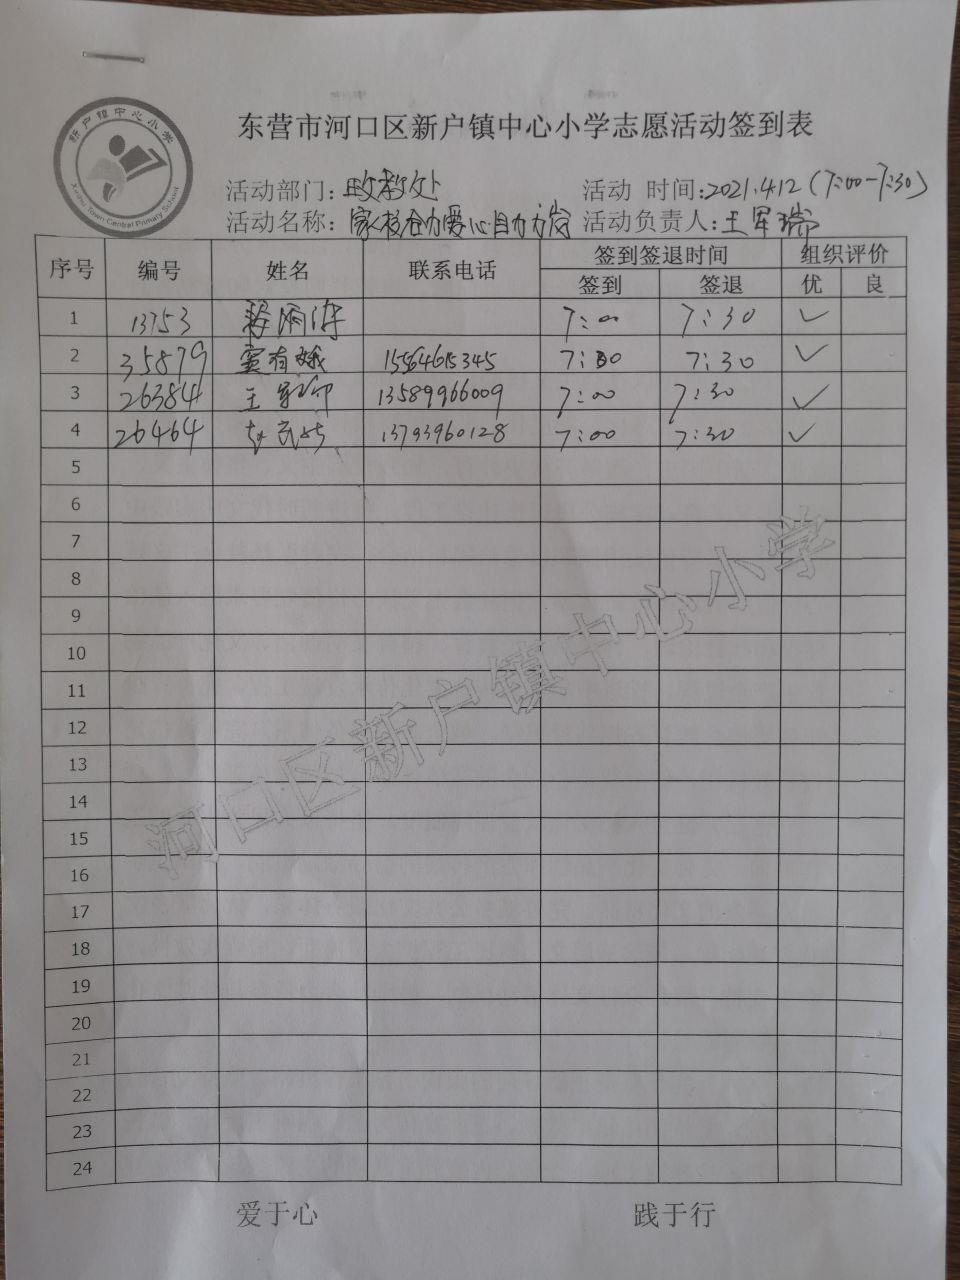 新户镇中心小学
Xinhu Town Central Primary School
东营市河口区新户镇中心小学志愿活动签到表
活动部门: 政教处 活动 时间: 2021.4.12 (7:00-7:30)
活动名称: 家校合力爱心自 活动负责人: 王军瑞
序号 编号 姓名 联系电话 签到签退时间 组织评价
签到 签退 优 良
1 13753 7:00 7:30 ✓
2 35879 窦有娥 15564615345 7:00 7:30 ✓
3 26384 王 13589966009 7:00 7:30 ✓
4 26464 赵 13793960128 7:00 7:30 ✓
5
6
7
8
9
10
11
12
13
14
15
16
17
18
19
20
21
22
23
24
河口区新户镇中心小学
爱于心 践于行